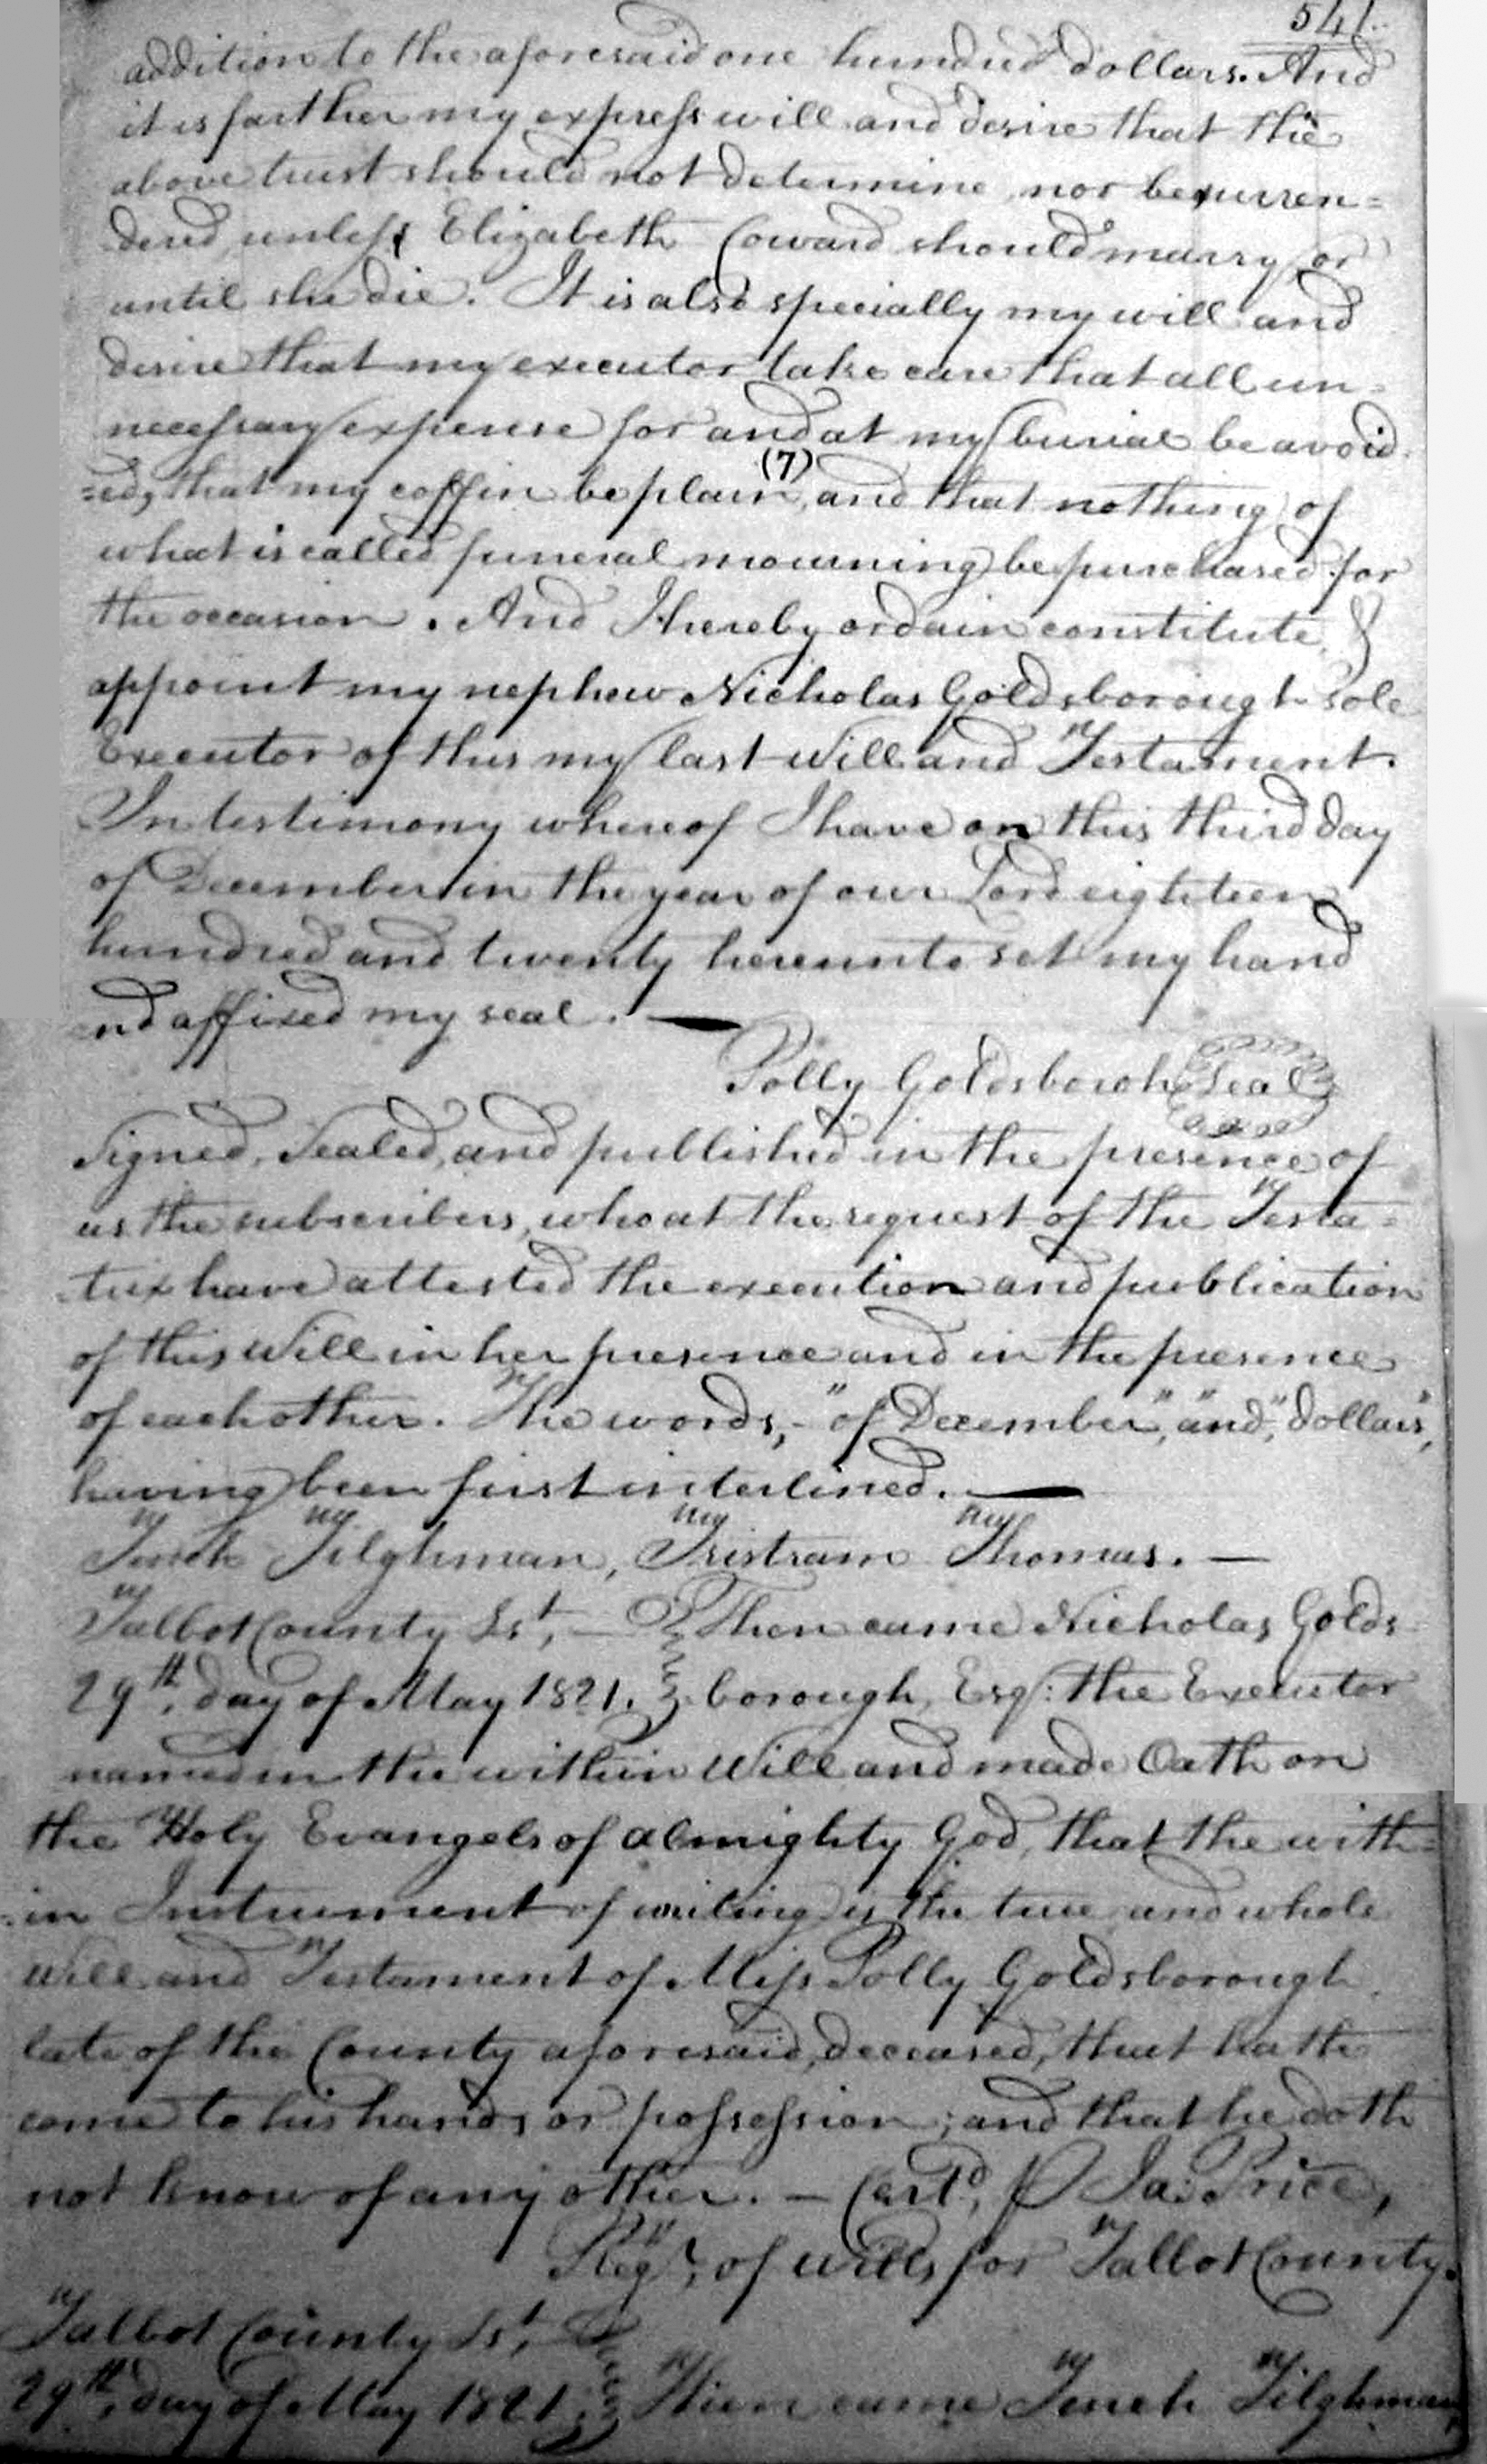 541.
addition to the aforesaid one hundred dollars. And
it is farther my express will and desire that the
above trust should not determine, nor be surren=
dered unless Elizabeth Coward should marry, or
until she die. It is also specially my will and
desire that my executor take care that all un=
necessary expense for and at my burial be avoid
=ed, that my coffin be plain, and that nothing of
(7)
what is called funeral mourning be purchased for
the occasion. And I hereby ordain constitute &
appoint my nephew Nicholas Goldsborough Sole
Executor of this my last Will and Testament.
In testimony whereof I have on this third day
of December in the year of our Lord eighteen
hundred and twenty hereunto set my hand
and affixed my seal. —
Polly Goldsboroh Seal
Signed, Sealed, and published in the presence of
us the subscribers, who at the request of the Testa=
trix have attested the execution and publication
of this Will in her presence and in the presence
of each other. The words, "of December", "and", "dollars",
having been first interlined. —
Tench Tilghman, Tristram Thomas. —
Talbot County Sst, — Then came Nicholas Golds
29th, day of May 1821. borough, Esqr: the Executor
named in the within Will and made Oath on
the Holy Evangels of almighty God, that the with=
=in Instrument of writing is the true and whole
Will and Testament of Miss Polly Goldsborough
late of the County aforesaid, deceased, that hath
come to his hands or possession; and that he doth
not know of any other. — Certd, ⅌ Ja: Price,
Regr, of Wills for Talbot County.
Talbot County Sst,
29th, day of May 1821. Then came Tench Tilghman,